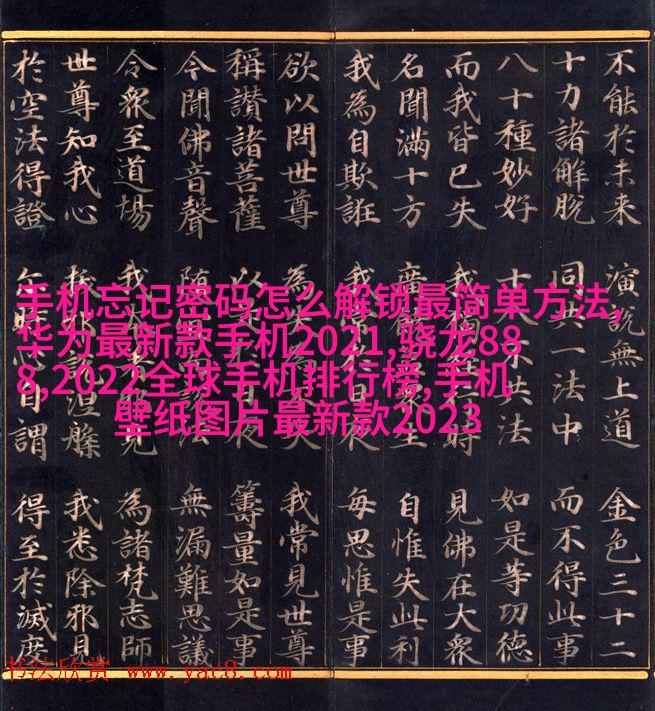 不能於未來 演說無上道 金色三十二
十力諸解脫 同共一法中 而不得此事
八十種妙好 十八 共法 如是等功德
而我皆已失 我 時 見佛在大眾
名聞滿十方 廣 生 自惟失此利
我為自欺誑 我常 夜 每思惟是事
欲以問世尊 為 失 我常見世尊
稱讚諸菩薩 以 夜 籌量如是事
今聞佛音聲 隨 法 無漏難思議
令眾至道場 我 見 為諸梵志師
世尊知我心 涅槃 我悉除邪見
於空法得證 自謂 得至於滅度
手机忘记密码怎么解锁最简单方法,
华为最新款手机2021,骁龙88
8,2022全球手机排行榜,手机
壁纸图片最新款2023
书法欣赏 www.yac8.com